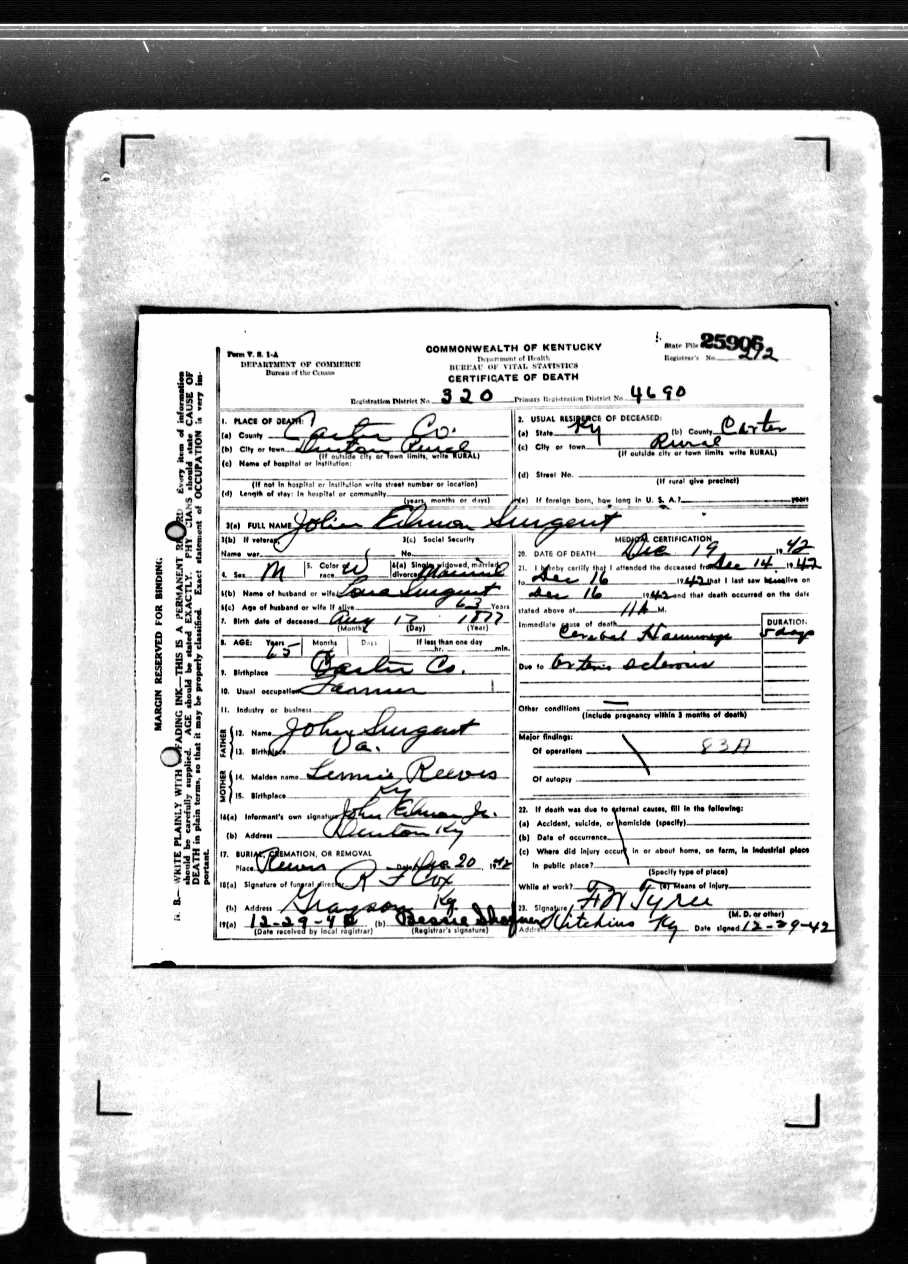 Form V. S. 1-A
DEPARTMENT OF COMMERCE
Bureau of the Census
COMMONWEALTH OF KENTUCKY
Department of Health
BUREAU OF VITAL STATISTICS
CERTIFICATE OF DEATH
State File 25906
Registrar's No. 212
Registration District No. 320 Primary Registration District No. 4690
MARGIN RESERVED FOR BINDING
N. B.— WRITE PLAINLY WITH FADING INK—THIS IS A PERMANENT Every item of information
should be carefully supplied. AGE should be stated EXACTLY. should state CAUSE OF
DEATH in plain terms, so that it may be properly classified. Exact statement of OCCUPATION is very im-
portant.
1. PLACE OF DEATH:
(a) County Carter Co.
(b) City or town Denton Rural
(If outside city or town limits, write RURAL)
(c) Name of hospital or institution:
(If not in hospital or institution write street number or location)
(d) Length of stay: In hospital or community
(years, months or days)
2. USUAL RESIDENCE OF DECEASED:
(a) State Ky (b) County Carter
(c) City or town Rural
(If outside city or town limits write RURAL)
(d) Street No.
(If rural give precinct)
(e) If foreign born, how long in U. S. A.? years
3(a) FULL NAME Edman Surgent
3(b) If veteran, 3(c) Social Security
Name war No.
4. Sex M 5. Color or race W 6(a) Single, widowed, married, divorced Married
6(b) Name of husband or wife Surgent
6(c) Age of husband or wife if alive 63 Years
7. Birth date of deceased Aug 17 1877
(Month) (Day) (Year)
8. AGE: Years Months Days If less than one day
65 hr. min.
9. Birthplace Carter Co.
10. Usual occupation Farmer
11. Industry or business
FATHER
12. Name John Surgent
13. Birthplace Va.
MOTHER
14. Maiden name Reeves
15. Birthplace Ky
16(a) Informant's own signature John Edman Jr.
(b) Address Denton Ky
17. BURIAL, CREMATION, OR REMOVAL
Place Reeves Date Dec 20, 1942
18(a) Signature of funeral director R F Cox
(b) Address Grayson Ky.
19(a) 12-29-42 (b) Bessie
(Date received by local registrar) (Registrar's signature)
MEDICAL CERTIFICATION
20. DATE OF DEATH Dec 19 1942
21. I hereby certify that I attended the deceased from Dec 14, 1942
to Dec 16 1942 that I last saw alive on
Dec 16 1942 and that death occurred on the date
stated above at M.
Immediate cause of death DURATION
Cerebal 5 days
Due to sclerosis
Other conditions
(Include pregnancy within 3 months of death)
Major findings:
Of operations 83A
Of autopsy
22. If death was due to external causes, fill in the following:
(a) Accident, suicide, or homicide (specify)
(b) Date of occurrence
(c) Where did injury occur in or about home, on farm, in industrial place
in public place?
(Specify type of place)
While at work? (e) Means of injury
23. Signature Tyree
(M. D. or other)
Address Hitchins Ky Date signed 12-29-42